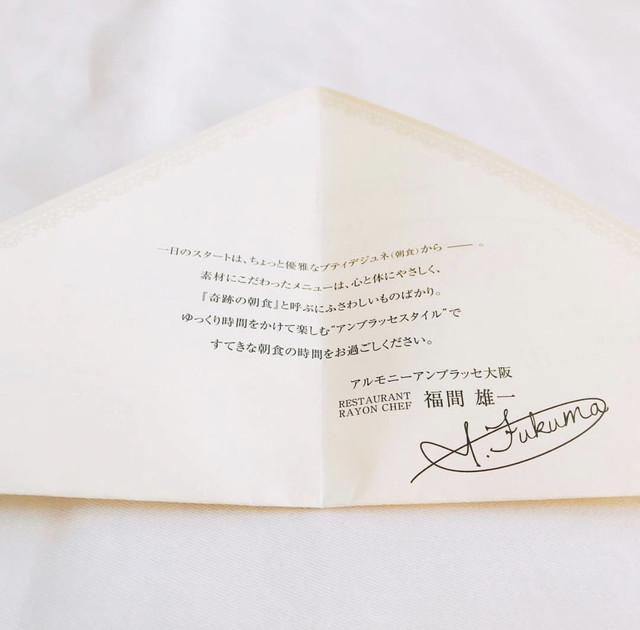 一日のスタートは、ちょっと優雅なプティデジュネ(朝食)から ―― 。
素材にこだわったメニューは、心と体にやさしく、
『奇跡の朝食』と呼ぶにふさわしいものばかり。
ゆっくり時間をかけて楽しむ“アンブラッセスタイル”で
すてきな朝食の時間をお過ごしください。
アルモニーアンブラッセ大阪
RESTAURANT
RAYON CHEF 福間 雄一
Y. Fukuma